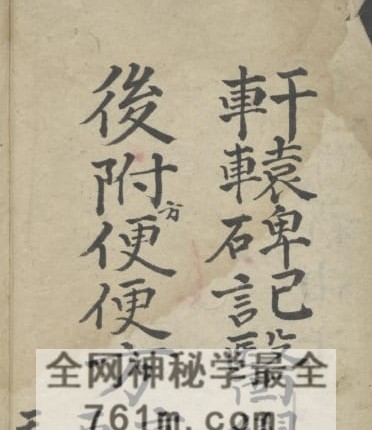 軒轅碑記醫
後附方便便方
全网神秘学最全
761m.com